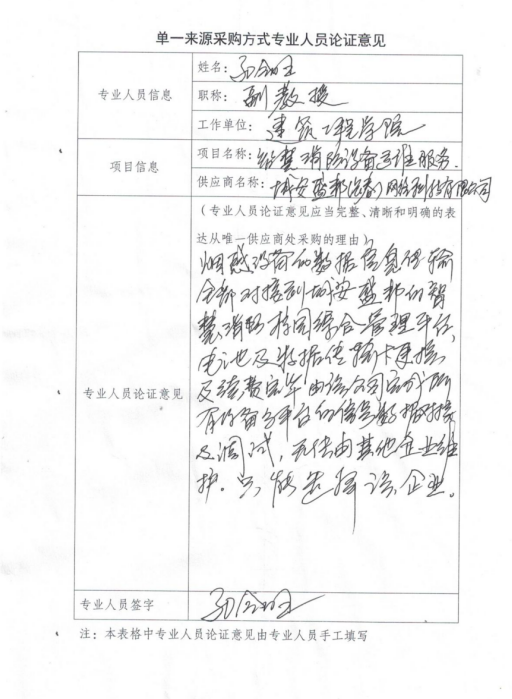 单一来源采购方式专业人员论证意见
专业人员信息
姓名:
职称: 副教授
工作单位: 建筑工程学院
项目信息
项目名称: 智慧消防设备运维服务.
供应商名称: 城安盛邦(长春)网络科技有限公司
(专业人员论证意见应当完整、清晰和明确的表
达从唯一供应商处采购的理由)
专业人员论证意见
烟感设备的数据信息传输
全部对接到城安盛邦的智
慧消防校园综合管理平台,
电池及数据传输卡更换
及续费
由该公司完成所
有设备与平台的信息数据对接
及调试,无法由其他企业维
护.只能选择该企业.
专业人员签字
注:本表格中专业人员论证意见由专业人员手工填写